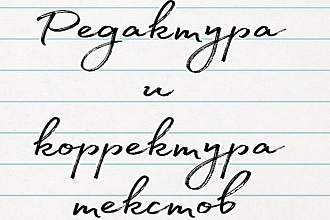 Редактура
и
корректура
текстов